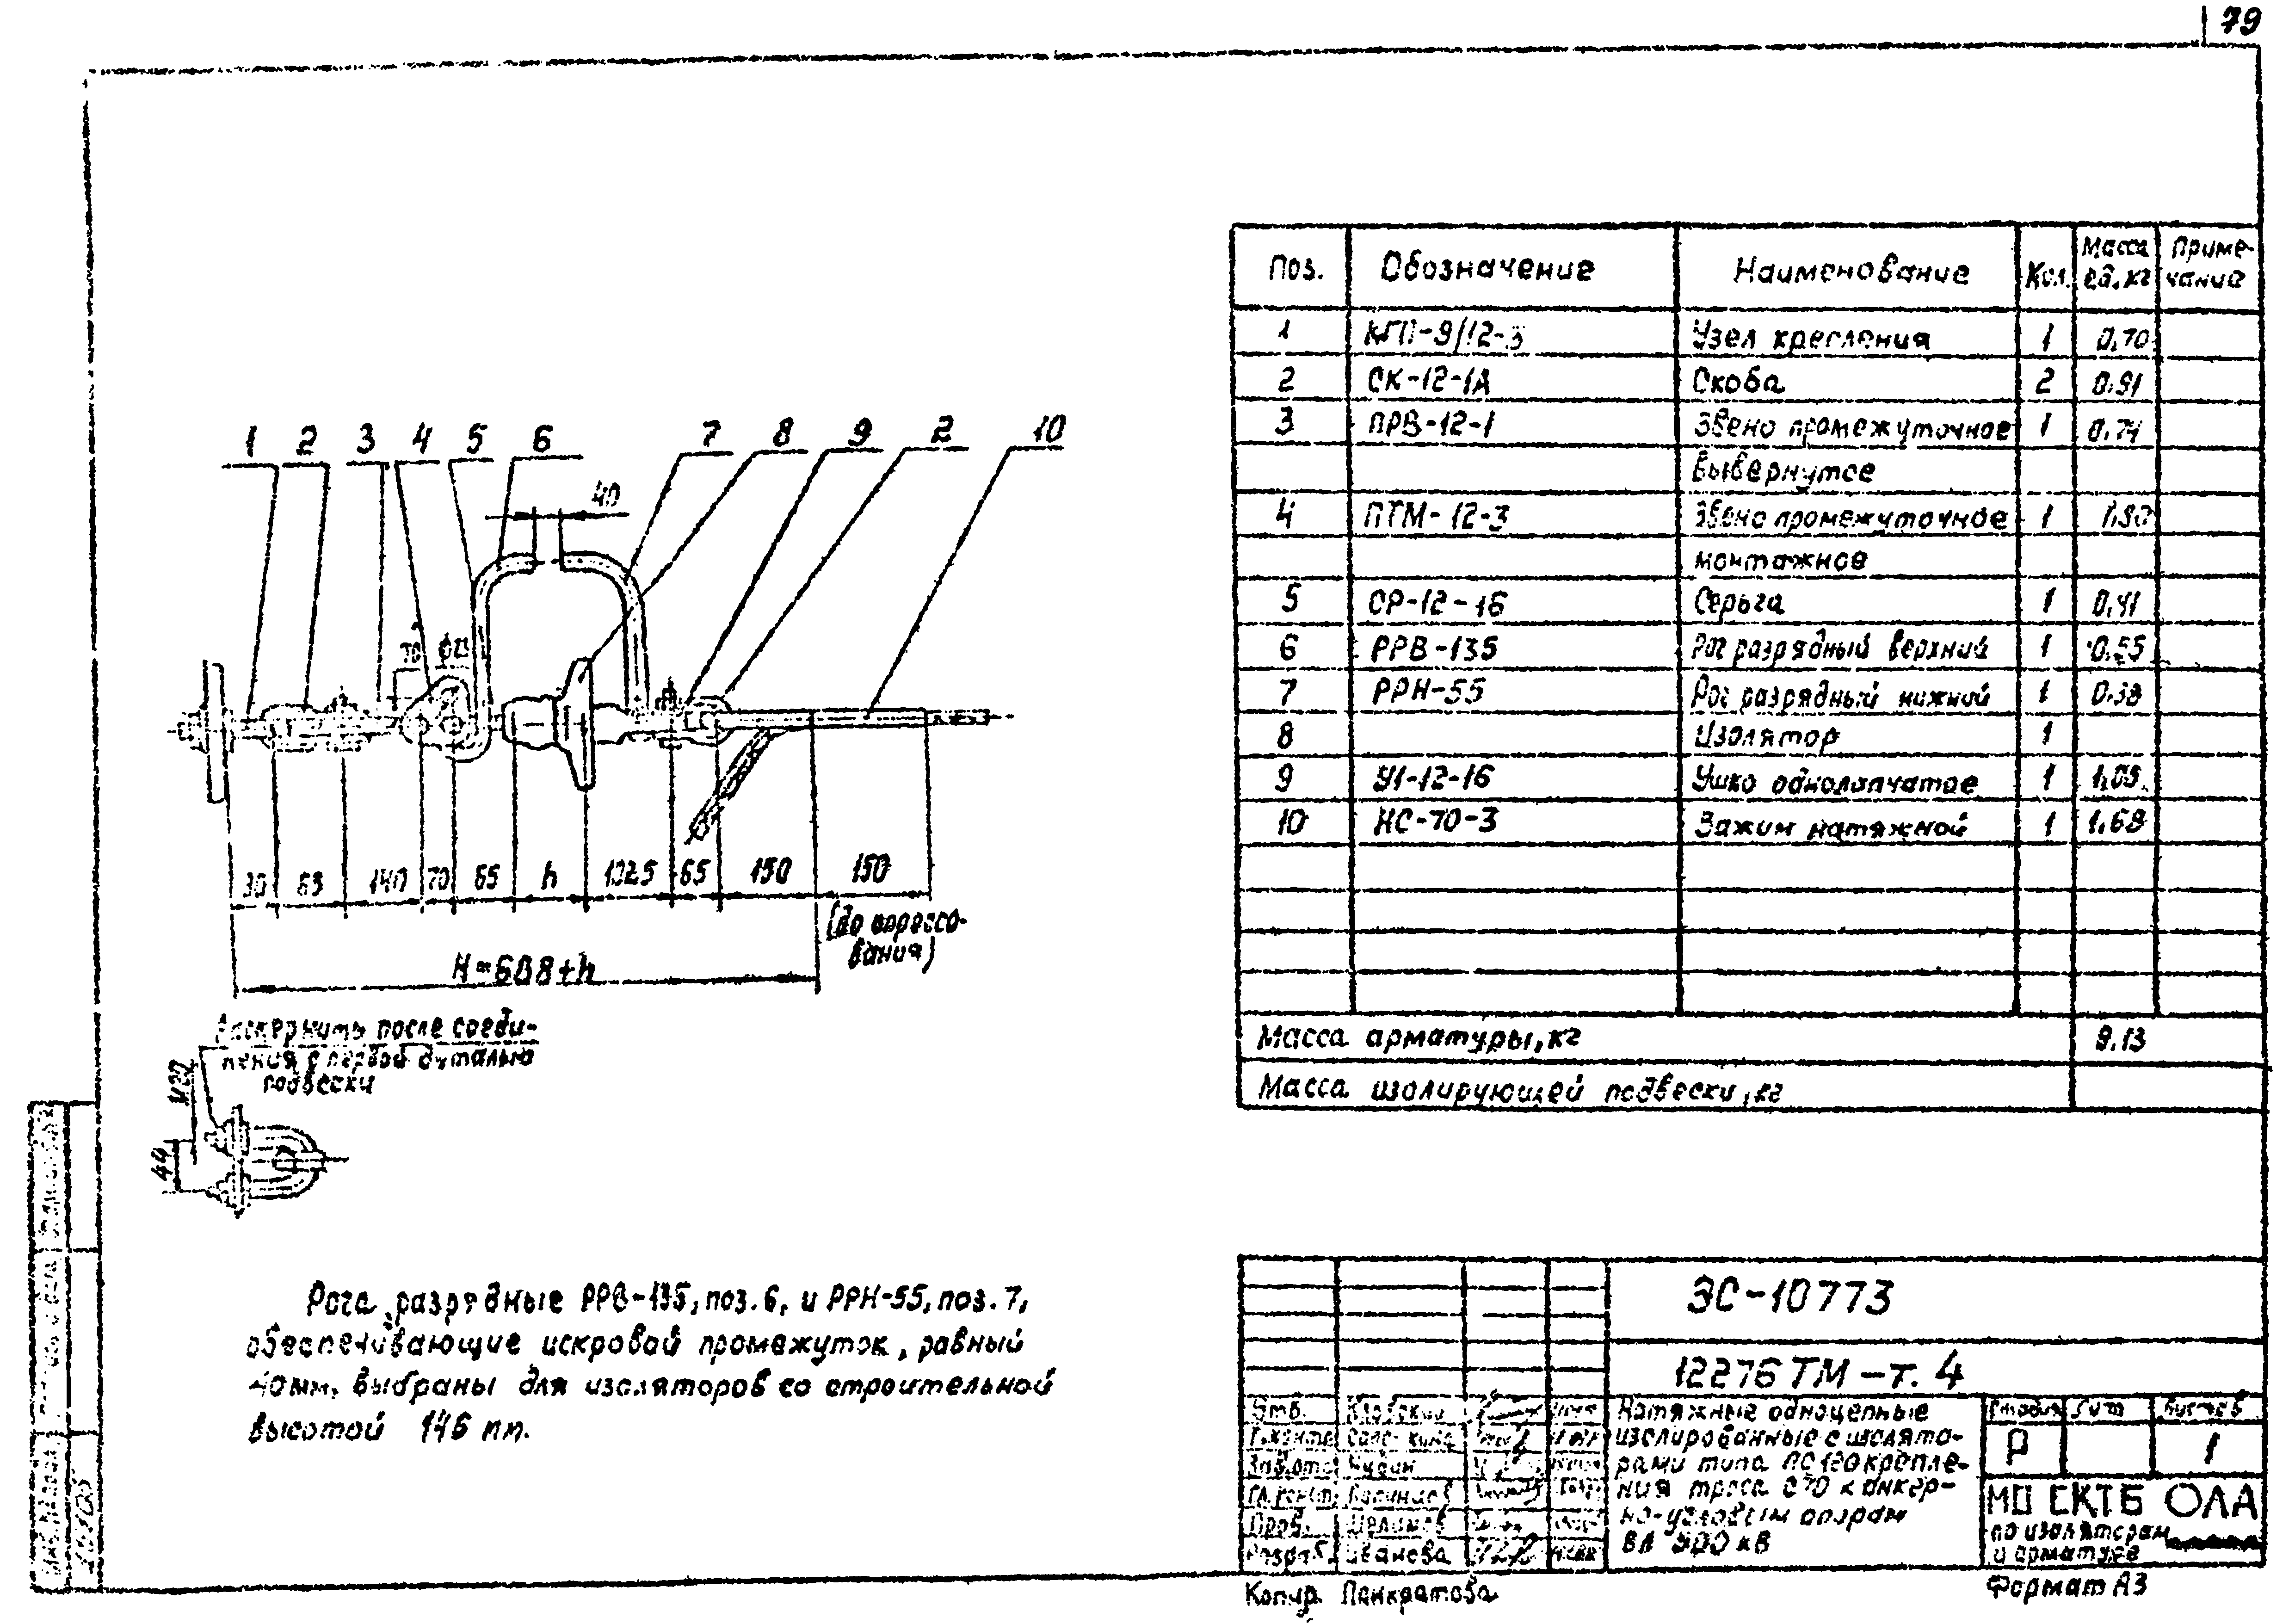 79
1 2 3 4 5 6 7 8 9 2 10
40
70
30 65 140 70 65 h 102,5 65 150 150
(до опрессо-
вания)
H=688+h
Раскернить после соеди-
нения с первой деталью
подвески
44
Рога разрядные РРВ-135, поз. 6, и РРН-55, поз. 7,
обеспечивающие искровой промежуток, равный
40мм, выбраны для изоляторов со строительной
высотой 146 мм.
Поз. Обозначение Наименование Кол. Масса ед, кг Приме-чание
1 КГП-9/12-3 Узел крепления 1 0,70
2 СК-12-1А Скоба 2 0,91
3 ПРВ-12-1 Звено промежуточное 1 0,74
вывернутое
4 ПТМ-12-3 Звено промежуточное 1 1,80
монтажное
5 СР-12-16 Серьга 1 0,41
6 РРВ-135 Рог разрядный верхний 1 0,55
7 РРН-55 Рог разрядный нижний 1 0,38
8 Изолятор 1
9 У1-12-16 Ушко однолапчатое 1 1,05
10 НС-70-3 Зажим натяжной 1 1,68
Масса арматуры, кг 9,13
Масса изолирующей подвески, кг
ЭС-10773
12276 ТМ-т. 4
Утв.
Т.контр.
Зав.отд.
Гл.конст.
Пров.
Разраб. Иванова
Натяжные одноцепные
изолированные с изолято-
рами типа ПС 120 крепле-
ния троса С70 к анкер-
но-угловым опорам
ВЛ 500 кВ
Стадия Лист Листов
Р 1
МО СКТБ ОЛА
по изоляторам
и арматуре
Копир. Панкратова
Формат А3